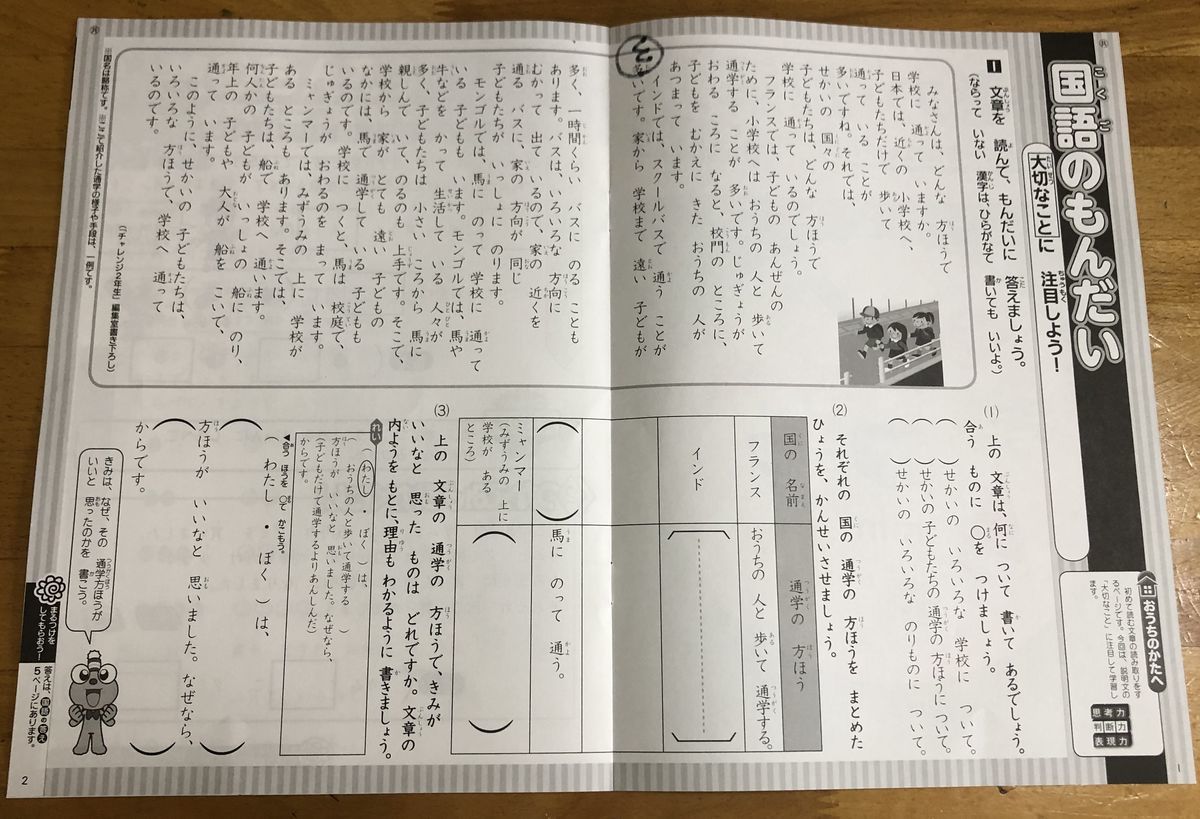 国語のもんだい
大切なことに 注目しよう!
1 文章を 読んで、もんだいに 答えましょう。
(ならって いない 漢字は、ひらがなで 書いても いいよ。)
みなさんは、どんな 方ほうで
学校に 通って いますか。
日本では、近くの 小学校へ、
子どもたちだけで 歩いて
通って いる ことが
多いですね。それでは、
せかいの 国々の
子どもたちは、どんな 方ほうで
学校に 通って いるのでしょう。
フランスでは 子どもの あんぜんの
ために、小学校へは おうちの 人と 歩いて
通学する ことが 多いです。じゅぎょうが
おわる ころに なると、校門の ところに、
子どもを むかえに きた おうちの 人が
あつまって います。
インドでは、スクールバスで 通う ことが
多いです。家から 学校まで 遠い 子どもが
多く、一時間くらい バスに のる ことも
あります。バスは、いろいろな 方向に
むかって 出て いるので、家の 近くを
通る バスに、家の 方向が 同じ
子どもたちが いっしょに のります。
モンゴルでは、馬に のって 学校に 通って
いる 子どもも います。モンゴルでは、馬や
牛などを かって 生活して いる 人々が
多く、子どもたちは 小さい ころから 馬に
親しんで いて、のるのも 上手です。そこで、
学校から 家が とても 遠い 子どもの
なかには、馬で 通学して いる 子どもも
いるのです。学校に つくと、馬は 校庭で、
じゅぎょうが おわるのを まって います。
ミャンマーでは、みずうみの 上に 学校が
ある ところも あります。そこでは、
子どもたちは、船で 学校へ 通います。
何人かの 子どもが いっしょの 船に のり、
年上の 子どもや 大人が 船を こいで、
通って います。
このように、せかいの 子どもたちは、
いろいろな 方ほうで、学校へ 通って
いるのです。
(「チャレンジ2年生」編集室書き下ろし)
※国名は略称です。 ※ここで紹介した通学の様子や手段は、一例です。
(1) 上の 文章は、何に ついて 書いて あるでしょう。
合う ものに ○を つけましょう。
( )せかいの いろいろな 学校に ついて。
( )せかいの 子どもたちの 通学の 方ほうに ついて。
( )せかいの いろいろな のりものに ついて。
(2) それぞれの 国の 通学の 方ほうを まとめた
ひょうを、かんせいさせましょう。
国の 名前
通学の 方ほう
フランス
おうちの 人と 歩いて 通学する。
インド
馬に のって 通う。
ミャンマー
(みずうみの 上に
学校が ある
ところ)
(3) 上の 文章の 通学の 方ほうで、きみが
いいなと 思った ものは どれですか。文章の
内ようを もとに、理由も わかるように 書きましょう。
れい
( わたし ・ ぼく )は、
( おうちの人と歩いて通学する )
方ほうが いいなと 思いました。なぜなら、
(子どもだけで通学するよりあんしんだ)
からです。
◀合う ほうを ○で かこもう。
( わたし ・ ぼく )は、
( )
方ほうが いいなと 思いました。なぜなら、
( )
からです。
きみは、なぜ、その 通学方ほうが
いいと 思ったのかを 書こう。
まるつけを
してもらおう!
答えは、国語の答え
5ページにあります。
おうちのかたへ
初めて読む文章の読み取りをす
るページです。今回は、説明文の
「大切なこと」に注目して学習し
ます。
思考力
判断力
表現力
1
2